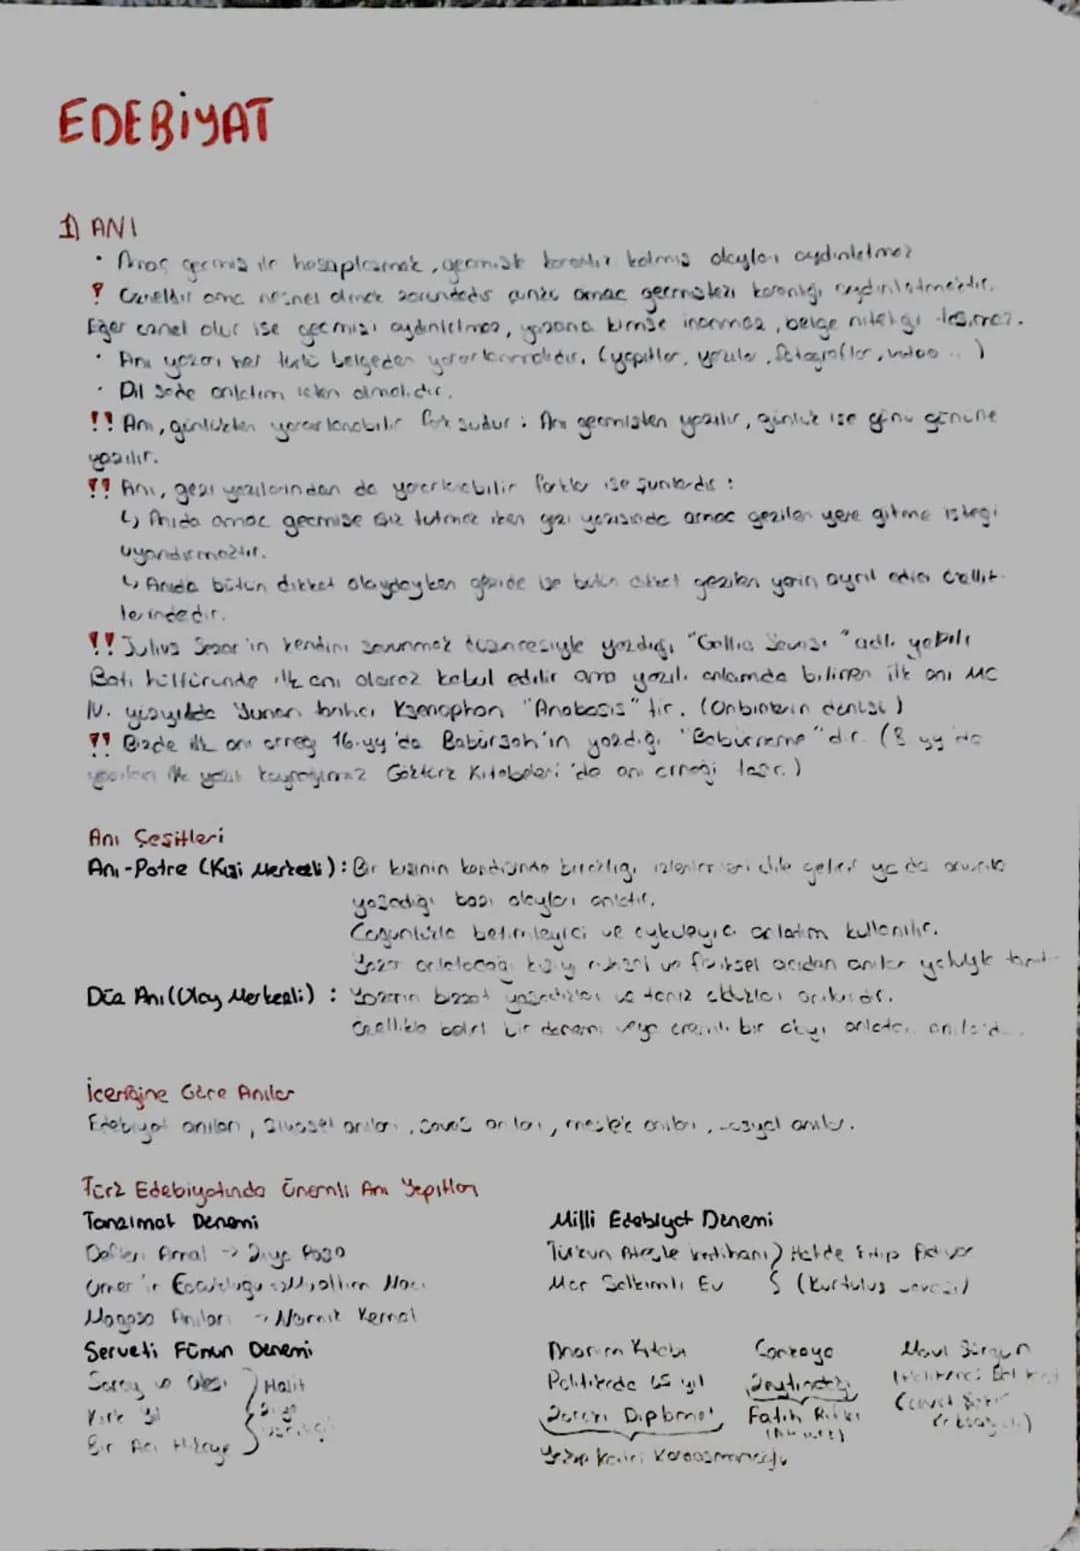 EDEBİYAT
1) ANI
• Amaç geçmiş ile hesaplaşmak, geçmişte karanlık kalmış olayları aydınlatmaz
? Özneldir ama nesnel olmak zorundadır çünkü amaç geçmişteki karanlığı aydınlatmaktır.
Eğer öznel olur ise geçmişi aydınlatmaz, yazana kimse inanmaz, belge niteliği taşımaz.
• Anı yazarı her türlü belgeden yararlanmalıdır. (yapıtlar, yazılar, fotoğraflar, video .. )
• Dil sade anlatım içten olmalıdır.
!! Anı, günlükten yararlanabilir fark şudur : Anı geçmişten yazılır, günlük ise günü gününe
yazılır.
!! Anı, gezi yazılarından da yararlanabilir farklar ise şunlardır :
↳ Anıda amaç geçmişe ışık tutmak iken gezi yazısında amaç gezilen yere gitme isteği
uyandırmaktır.
↳ Anıda bütün dikkat olaydayken gezide ise bütün dikkat gezilen yerin ayırt edici özellik-
lerindedir.
!! Julius Sezar'ın kendini savunmak düşüncesiyle yazdığı "Gallia Savaşı" adlı yapıtı
Batı kültüründe ilk anı olarak kabul edilir ama yazılı anlamda bilinen ilk anı MÖ
IV. yüzyılda Yunan tarihçi Ksenophon "Anabasis" tir. (Onbinlerin dönüşü)
!! Bizde ilk anı örneği 16.yy'da Babürşah'ın yazdığı "Baburname" dir. (8 yy'da
yazılan ilk yazılı kaynağımız Göktürk Kitabeleri'de anı örneği taşır.)
Anı Çeşitleri
Anı-Potre (Kişi Merkezli): Bir kişinin kendisinde bıraktığı izlenimleri dile getirir ya da onunla
yaşadığı bazı olayları anlatır.
Çoğunlukla betimleyici ve öyküleyici anlatım kullanılır.
Yazar anlatacağı kişiyi ruhsal ve fiziksel açıdan anılar yoluyla tanıt
Düz Anı (Olay Merkezli) : Yazarın bizzat yaşadıkları ve tanık oldukları anılardır.
Özellikle belirli bir dönemi veya önemli bir olayı anlatan anılardır.
İçeriğine Göre Anılar
Edebiyat anıları, siyasal anılar, savaş anıları, meslek anıları, sosyal anılar.
Türk Edebiyatında Önemli Anı Yapıtları
Tanzimat Dönemi
Defteri Amal → Ziya Paşa
Ömer'in Çocukluğu → Muallim Naci
Magosa Anıları → Namık Kemal
Serveti Fünun Dönemi
Saray ve Ötesi
Kırk Yıl
Bir Acı Hikaye
Halit
Ziya
Uşaklıgil
Milli Edebiyat Dönemi
Türkün Ateşle İmtihanı
Mor Salkımlı Ev
Halide Edip Adıvar
(Kurtuluş Savaşı)
Anamın Kitabı
Politikada 45 yıl
Zoraki Diplomat
Yakup Kadri Karaosmanoğlu
Çankaya
Zeytindağı
Falih Rıfkı
(Atatürk)
Mavi Sürgün
(Halikarnas Balıkçısı
(Cevat Şakir
Kabaağaçlı)